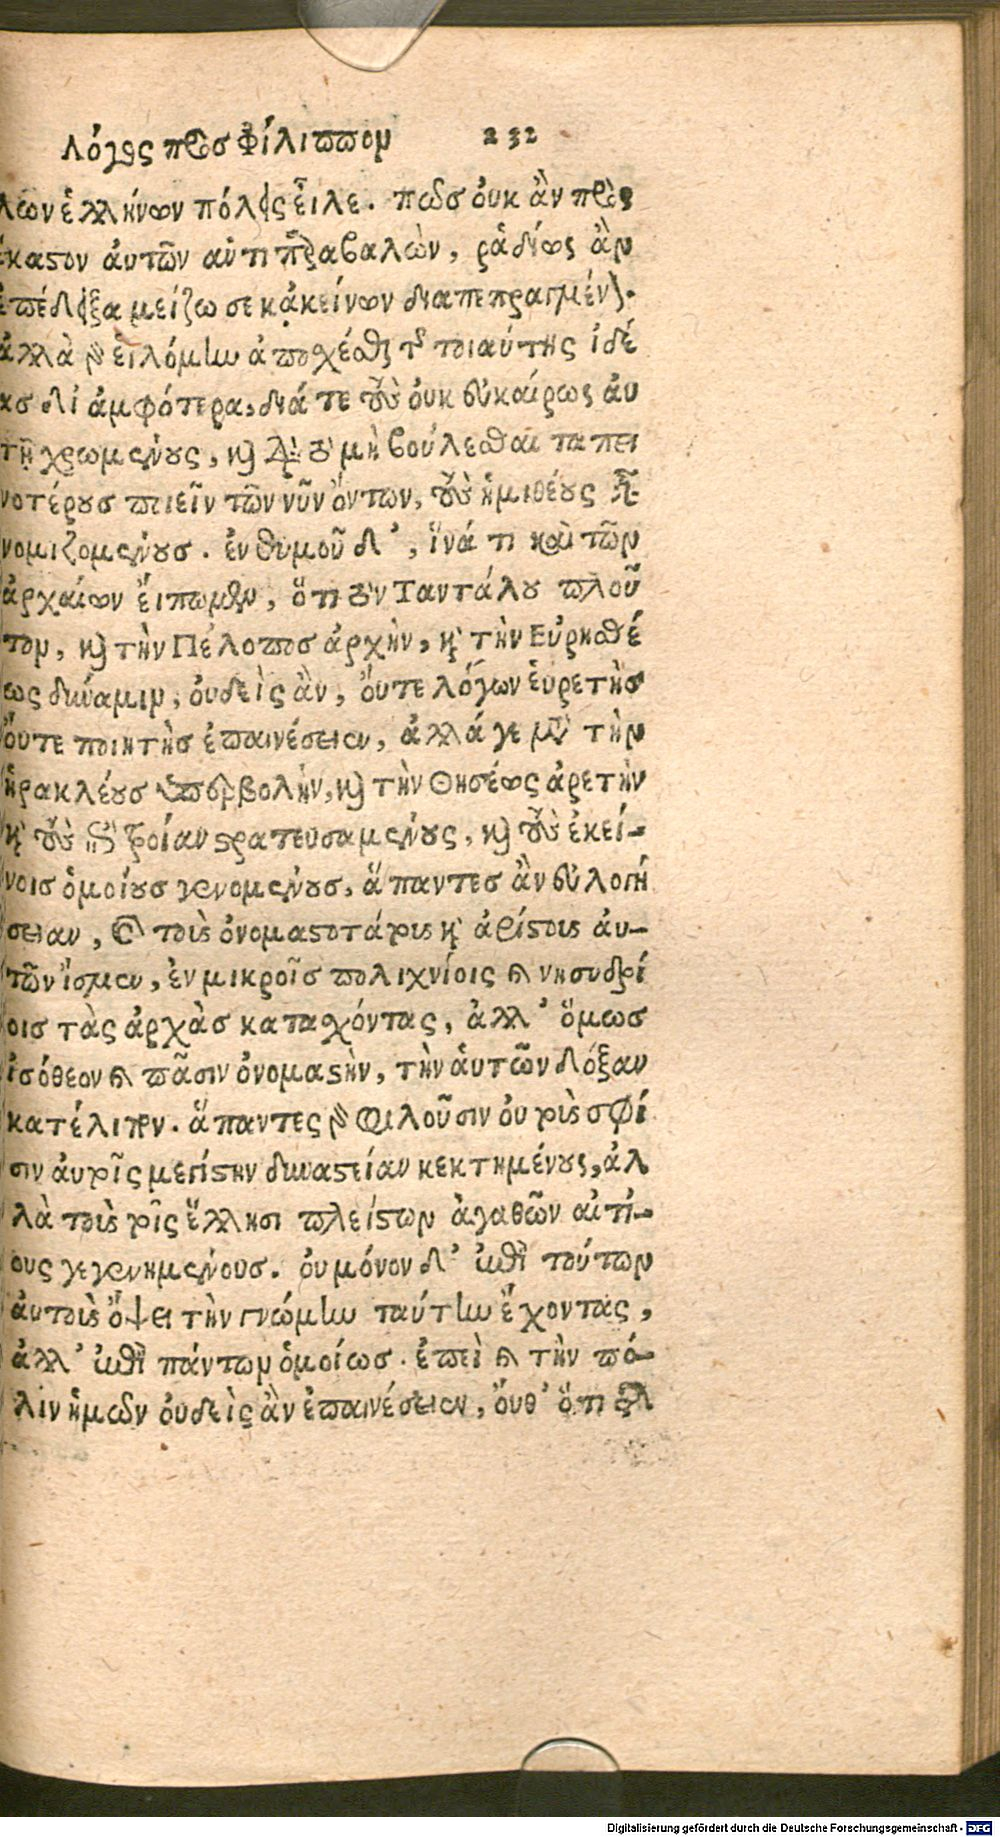 Λόγος πρὸσ Φίλιππον 232
λέων ἑλλήνων πόλεις εἷλε. πῶσ ὀυκ ἂν πρὸς
ἕκαστον ἀυτῶν ἀντιπαραβαλὼν, ῥᾳδίως ἂν
ἐπέδειξα μείζω σε κᾀκείνων διαπεπραγμένον.
ἀλλὰ γὰρ ἑιλόμην ἀποσχέσθαι τῆς τοιαύτης ἰδέ
ασ δι ἀμφότερα, διά τε τοὺς ὀυκ ἐυκαίρως ἀυ
τῇ χρωμένους, καὶ διὰ τὸ μὴ βούλεσθαι ταπει
νοτέρουσ ποιεῖν τῶν νῦν ὄντων, τοὺς ἡμιθέους εἶναι
νομιζομένουσ. ἐνθυμοῦ δ', ἵνά τι καὶ τῶν
ἀρχαίων ἔιπωμεν, ὅτι τὸν Ταντάλου πλοῦ
τον, καὶ τὴν Πέλοποσ ἀρχὴν, καὶ τὴν Εὐρησθέ
ως δύναμιν, ὀυδεὶς ἂν, ὄυτε λόγων ἑυρετὴσ
ὄυτε ποιητὴσ ἐπαινέσειεν, ἀλλά γε μετὰ τὴν
ἡρακλέουσ ὑπερβολὴν, καὶ τὴν Θησέως ἀρετὴν
καὶ τοὺς ἐπὶ τροίαν στρατευσαμένους, καὶ τοὺς ἐκεί-
νοισ ὁμοίουσ γενομένουσ, ἅπαντεσ ἂν ἐυλογή
σειαν, καὶ τοὺς ὀνομαστοτάτους καὶ ἀρίστους ἀυ-
τῶν ἴσμεν, ἐν μικροῖσ πολιχνίοις καὶ νησυδρί
οισ τὰς ἀρχὰσ κατασχόντας, ἀλλ' ὅμωσ
ἰσόθεον καὶ πᾶσιν ὀνομαστὴν, τὴν ἁυτῶν δόξαν
κατέλιπον. ἅπαντες γὰρ φιλοῦσιν ὀυ τοὺσ σφί
σιν ἀυτοῖς μεγίστην δυναστείαν κεκτημένους, ἀλ
λὰ τοὺς τοῖς ἕλλησι πλείστων ἀγαθῶν αἰτί-
ους γεγενημένουσ. ὀυ μόνον δ' ἐπὶ τούτων
ἀυτοὺς ὄψει τὴν γνώμην ταύτην ἔχοντας,
ἀλλ' ἐπὶ πάντων ὁμοίωσ. ἐπεὶ καὶ τὴν πό-
λιν ἡμῶν ὀυδεὶς ἂν ἐπαινέσειεν, ὄυθ' ὅτι
Digitalisierung gefördert durch die Deutsche Forschungsgemeinschaft - DFG